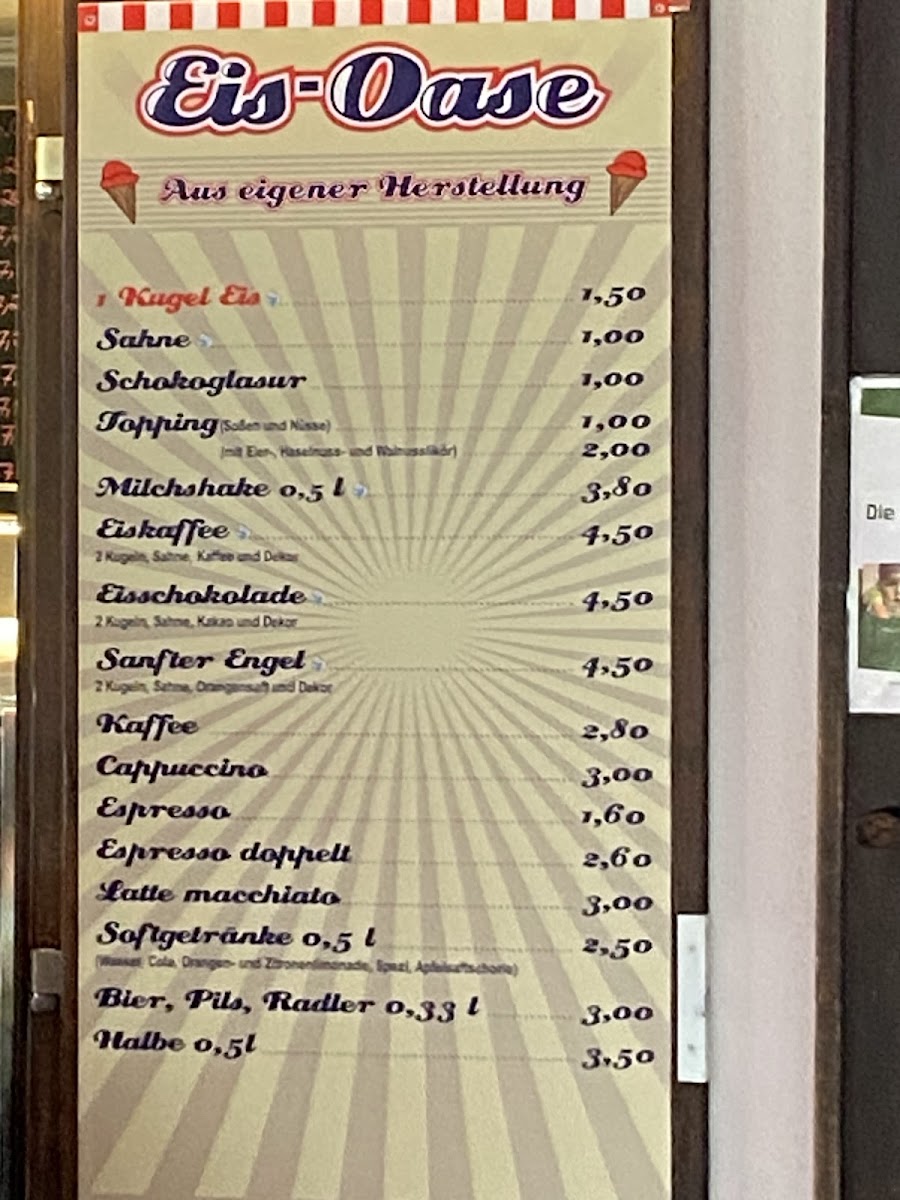 Eis-Oase
Aus eigener Herstellung
1 Kugel Eis 1,50
Sahne 1,00
Schokoglasur 1,00
Topping (Soßen und Nüsse) 1,00
(mit Eier-, Haselnuss- und Walnusslikör) 2,00
Milchshake 0,5 l 3,80
Eiskaffee 4,50
2 Kugeln, Sahne, Kaffee und Dekor
Eisschokolade 4,50
2 Kugeln, Sahne, Kakao und Dekor
Sanfter Engel 4,50
2 Kugeln, Sahne, Orangensaft und Dekor
Kaffee 2,80
Cappuccino 3,00
Espresso 1,60
Espresso doppelt 2,60
Latte macchiato 3,00
Softgetränke 0,5 l 2,50
(Wasser, Cola, Orangen- und Zitronenlimonade, Spezi, Apfelsaftschorle)
Bier, Pils, Radler 0,33 l 3,00
Halbe 0,5l 3,50
Die